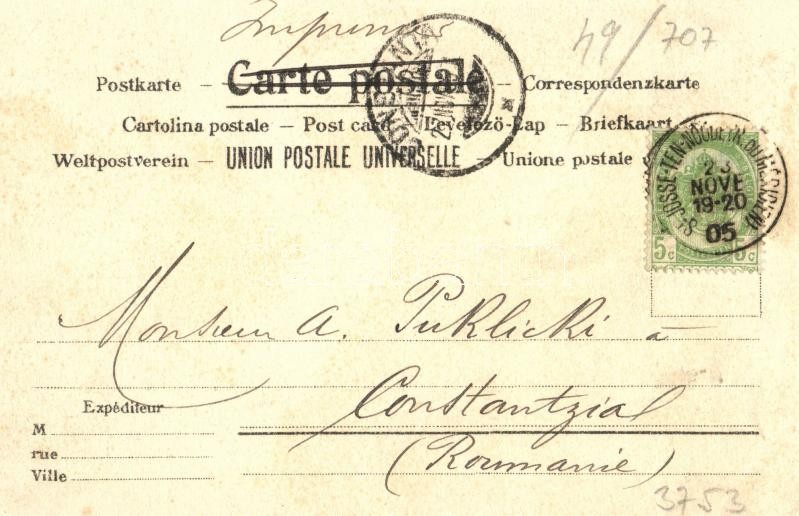 Imprimés
49/707
Postkarte — Carte postale — Correspondenzkarte
Cartolina postale — Post card — Levelező-Lap — Briefkaart
Weltpostverein — UNION POSTALE UNIVERSELLE — Unione postale
CONSTANTA
ST JOSSE-TEN-NOODE (R. DU MÉRIDIEN)
23
NOVE
19-20
05
5c 5c
Monsieur A. Puklicki à
Constantza
(Roumanie)
Expéditeur
M
rue
Ville
3753